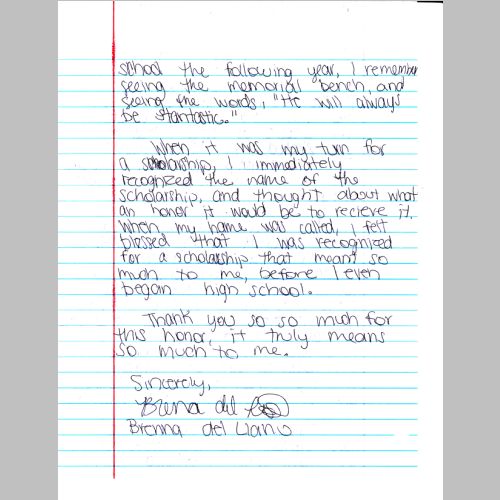 school the following year, I remember
seeing the memorial bench, and
seeing the words, "He will always
be stantastic."
When it was my turn for
a scholarship, I immediately
recognized the name of the
scholarship, and thought about what
an honor it would be to recieve it.
When my name was called, I felt
blessed that I was recognized
for a scholarship that meant so
much to me, before I even
began high school.
Thank you so so much for
this honor, it truly means
so much to me.
Sincerely,
Brenna del
Brenna del Llano